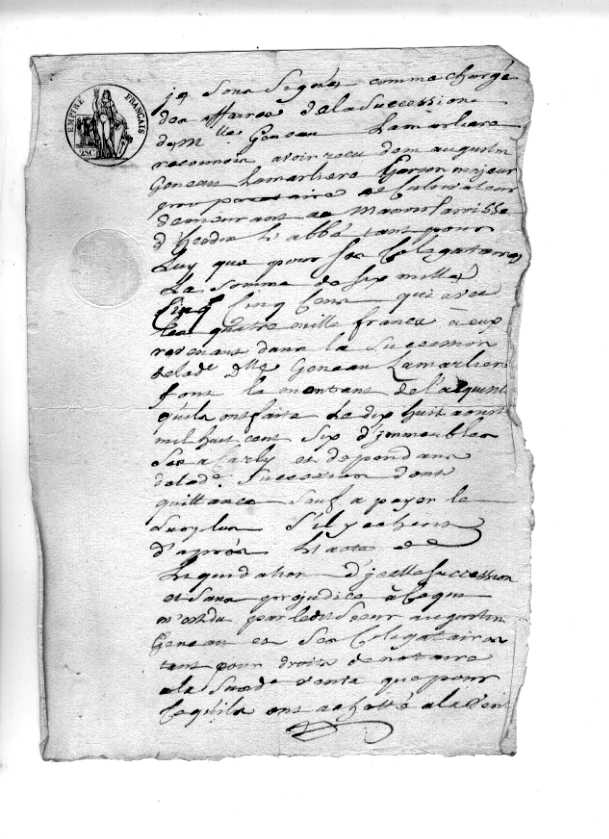 EMPIRE FRANÇAIS
25C
je Sous Signé comme chargé
des affaires de la Succession
de M.lle Goneau Lamarliere
reconnois avoir recu dem augustin
Goneau Lamarliere Garson majeur
proprietaire et Culivateur
demeurant au
d'hesdin l'abbé tant pour
Luy que pour Ses Colegataires
La Somme de Six mille
Cinq Cens qui avec
les quatre mille francs à eux
revenant dans la Succession
de lad.e D.lle Goneau Lamarliere
font le montant de l'aquint
qu'ils ont faite Le dix huit aoust
mil huit cent Six d'jmmeubles
Ses a Carly et dependans
de lad.e Succession dont
quittance Sauf a payer le
Surplus S'il y echeoit
d'après L'acte de
Liquidation d'jcelle Succession
et Sans prejudice à Ce que
m'est du par ledit Sieur augustin
Goneau et Ses Colegataires
tant pour droits de notaire
a la Susd.e vente que pour
Ce qu'ils ont achetté a la Vent